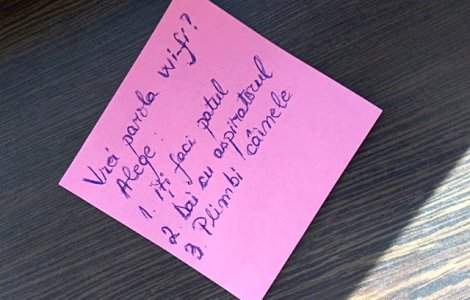 Vrei parola wi-fi?
Alege:
1. Îți faci patul
2. Dai cu aspiratorul
3. Plimbi câinele